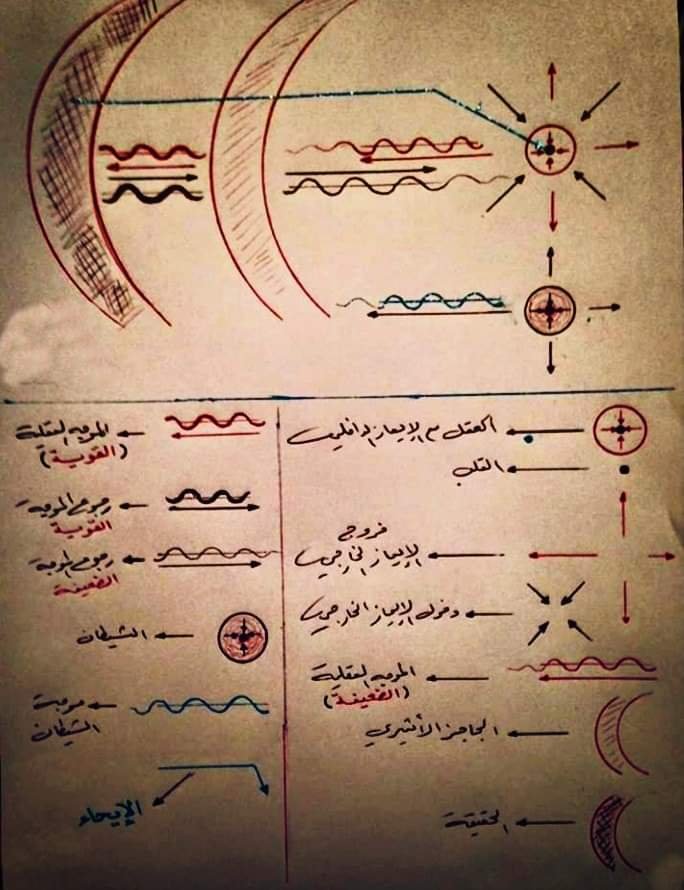 العقل مع الإيعاز الداخلي
القلب
خروج
الإيعاز الخارجي
دخول الإيعاز الخارجي
الموجه العقلية
(الضعيفة)
الحاجز الأثيري
الحقيقة
الموجه العقلية
(القوية)
رجوع الموجة
القوية
رجوع الموجة
الضعيفة
الشيطان
موجة
الشيطان
الإيحاء